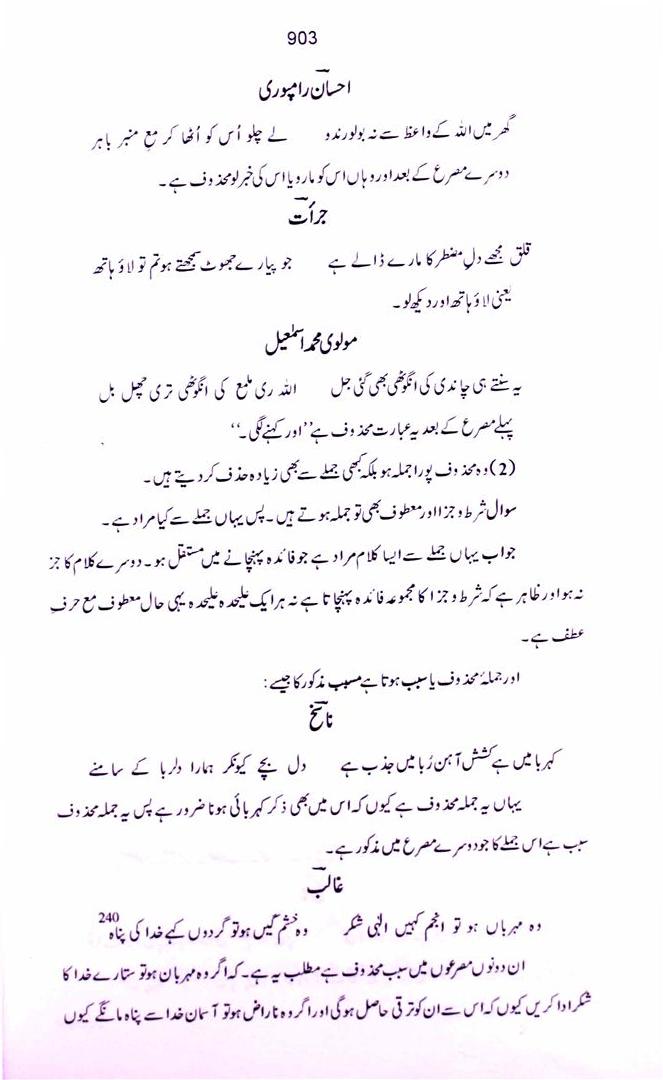 903
احسان رامپوری
گھر میں اللہ کے واعظ سے نہ بولو رندو لے چلو اُس کو اُٹھا کر مع منبر باہر
دوسرے مصرع کے بعد اور وہاں اس کو مارو یا اس کی خبر لو محذوف ہے۔
جرأت
قلق مجھے دلِ مضطر کا مارے ڈالے ہے جو پیارے جھوٹ سمجھتے ہو تم تو لاؤ ہاتھ
یعنی لاؤ ہاتھ اور دیکھ لو۔
مولوی محمد اسمٰعیل
یہ سنتے ہی چاندی کی انگوٹھی بھی گئی جل اللہ ری ملمع کی انگوٹھی تری چھل بل
پہلے مصرع کے بعد یہ عبارت محذوف ہے ”اور کہنے لگی۔“
(2) وہ محذوف پورا جملہ ہو بلکہ کبھی جملے سے بھی زیادہ حذف کر دیتے ہیں۔
سوال شرط و جزا اور معطوف بھی تو جملہ ہوتے ہیں۔ پس یہاں جملے سے کیا مراد ہے۔
جواب یہاں جملے سے ایسا کلام مراد ہے جو فائدہ پہنچانے میں مستقل ہو۔ دوسرے کلام کا جز
نہ ہو اور ظاہر ہے کہ شرط و جزا کا مجموعہ فائدہ پہنچاتا ہے نہ ہر ایک علیحدہ علیحدہ یہی حال معطوف مع حرفِ
عطف ہے۔
اور جملۂ محذوف یا سبب ہوتا ہے مسبب مذکور کا جیسے:
ناسخ
کہربا میں ہے کشش آہن رُبا میں جذب ہے دل بچے کیونکر ہمارا دلربا کے سامنے
یہاں یہ جملہ محذوف ہے کیوں کہ اس میں بھی ذکر کہربائی ہونا ضرور ہے پس یہ جملہ محذوف
سبب ہے اس جملے کا جو دوسرے مصرع میں مذکور ہے۔
غالب
وہ مہرباں ہو تو انجم کہیں الٰہی شکر وہ خشم گیں ہو تو گردوں کہے خدا کی پناہ 240
ان دونوں مصرعوں میں سبب محذوف ہے مطلب یہ ہے۔ کہ اگر وہ مہربان ہو تو ستارے خدا کا
شکر ادا کریں کیوں کہ اس سے ان کو ترقی حاصل ہوگی اور اگر وہ ناراض ہو تو آسمان خدا سے پناہ مانگے کیوں